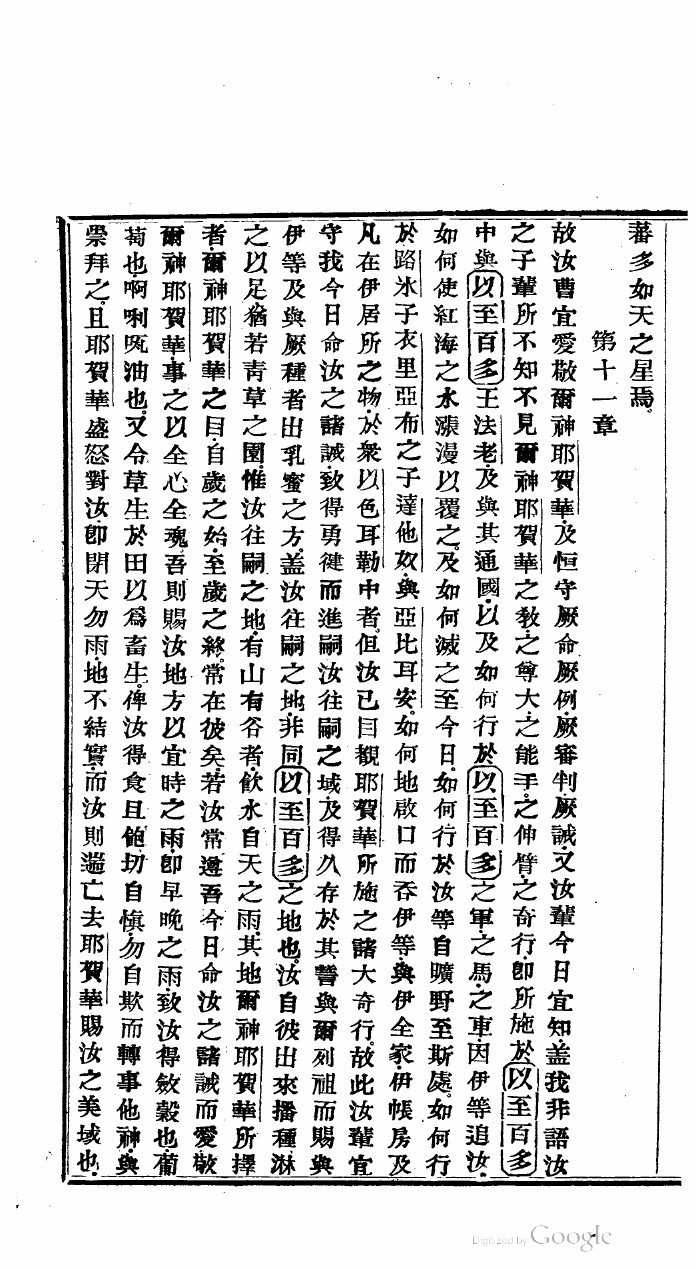 蕃多如天之星焉。
第十一章
故汝曹宜愛敬爾神耶賀華、及恒守厥命厥例、厥審判厥誡、又汝輩今日宜知、盖我非語汝
之子輩所不知不見爾神耶賀華之教、之尊大、之能手、之伸臂、之奇行、卽所施於以至百多
中與以至百多王法老、及與其通國、以及如何行於以至百多之軍、之馬、之車、因伊等追汝、
如何使紅海之水漲漫以覆之、及如何滅之至今日、如何行於汝等自曠野至斯處、如何行
於路氷子衣里亞布之子達他奴、與亞比耳安、如何地啟口而吞伊等、與伊全家、伊帳房、及
凡在伊居所之物、於衆以色耳勒中者。但汝已目覩耶賀華所施之諸大奇行。故此汝輩宜
守我今日命汝之諸誡、致得勇健而進嗣汝往嗣之域、及得久存於其誓與爾列祖而賜與
伊等及與厥種者出乳蜜之方。盖汝往嗣之地、非同以至百多之地也。汝自彼出來播種淋
之以足、猶若靑草之園、惟汝往嗣之地、有山有谷者、飮水自天之雨、其地爾神耶賀華所擇
者、爾神耶賀華之目、自歲之始、至歲之終、常在彼矣。若汝常遵吾今日命汝之諸誡、而愛敬
爾神耶賀華、事之以全心全魂、吾則賜汝地方以宜時之雨、卽早晚之雨、致汝得斂穀也、葡
萄也、啊唎𠯈油也。又令草生於田以爲畜生。俾汝得食且飽、切自愼、勿自欺而轉事他神、與
崇拜之。且耶賀華盛怒對汝、卽閉天勿雨、地不結實、而汝則遄亡去耶賀華賜汝之美域也、
Digitized by Google